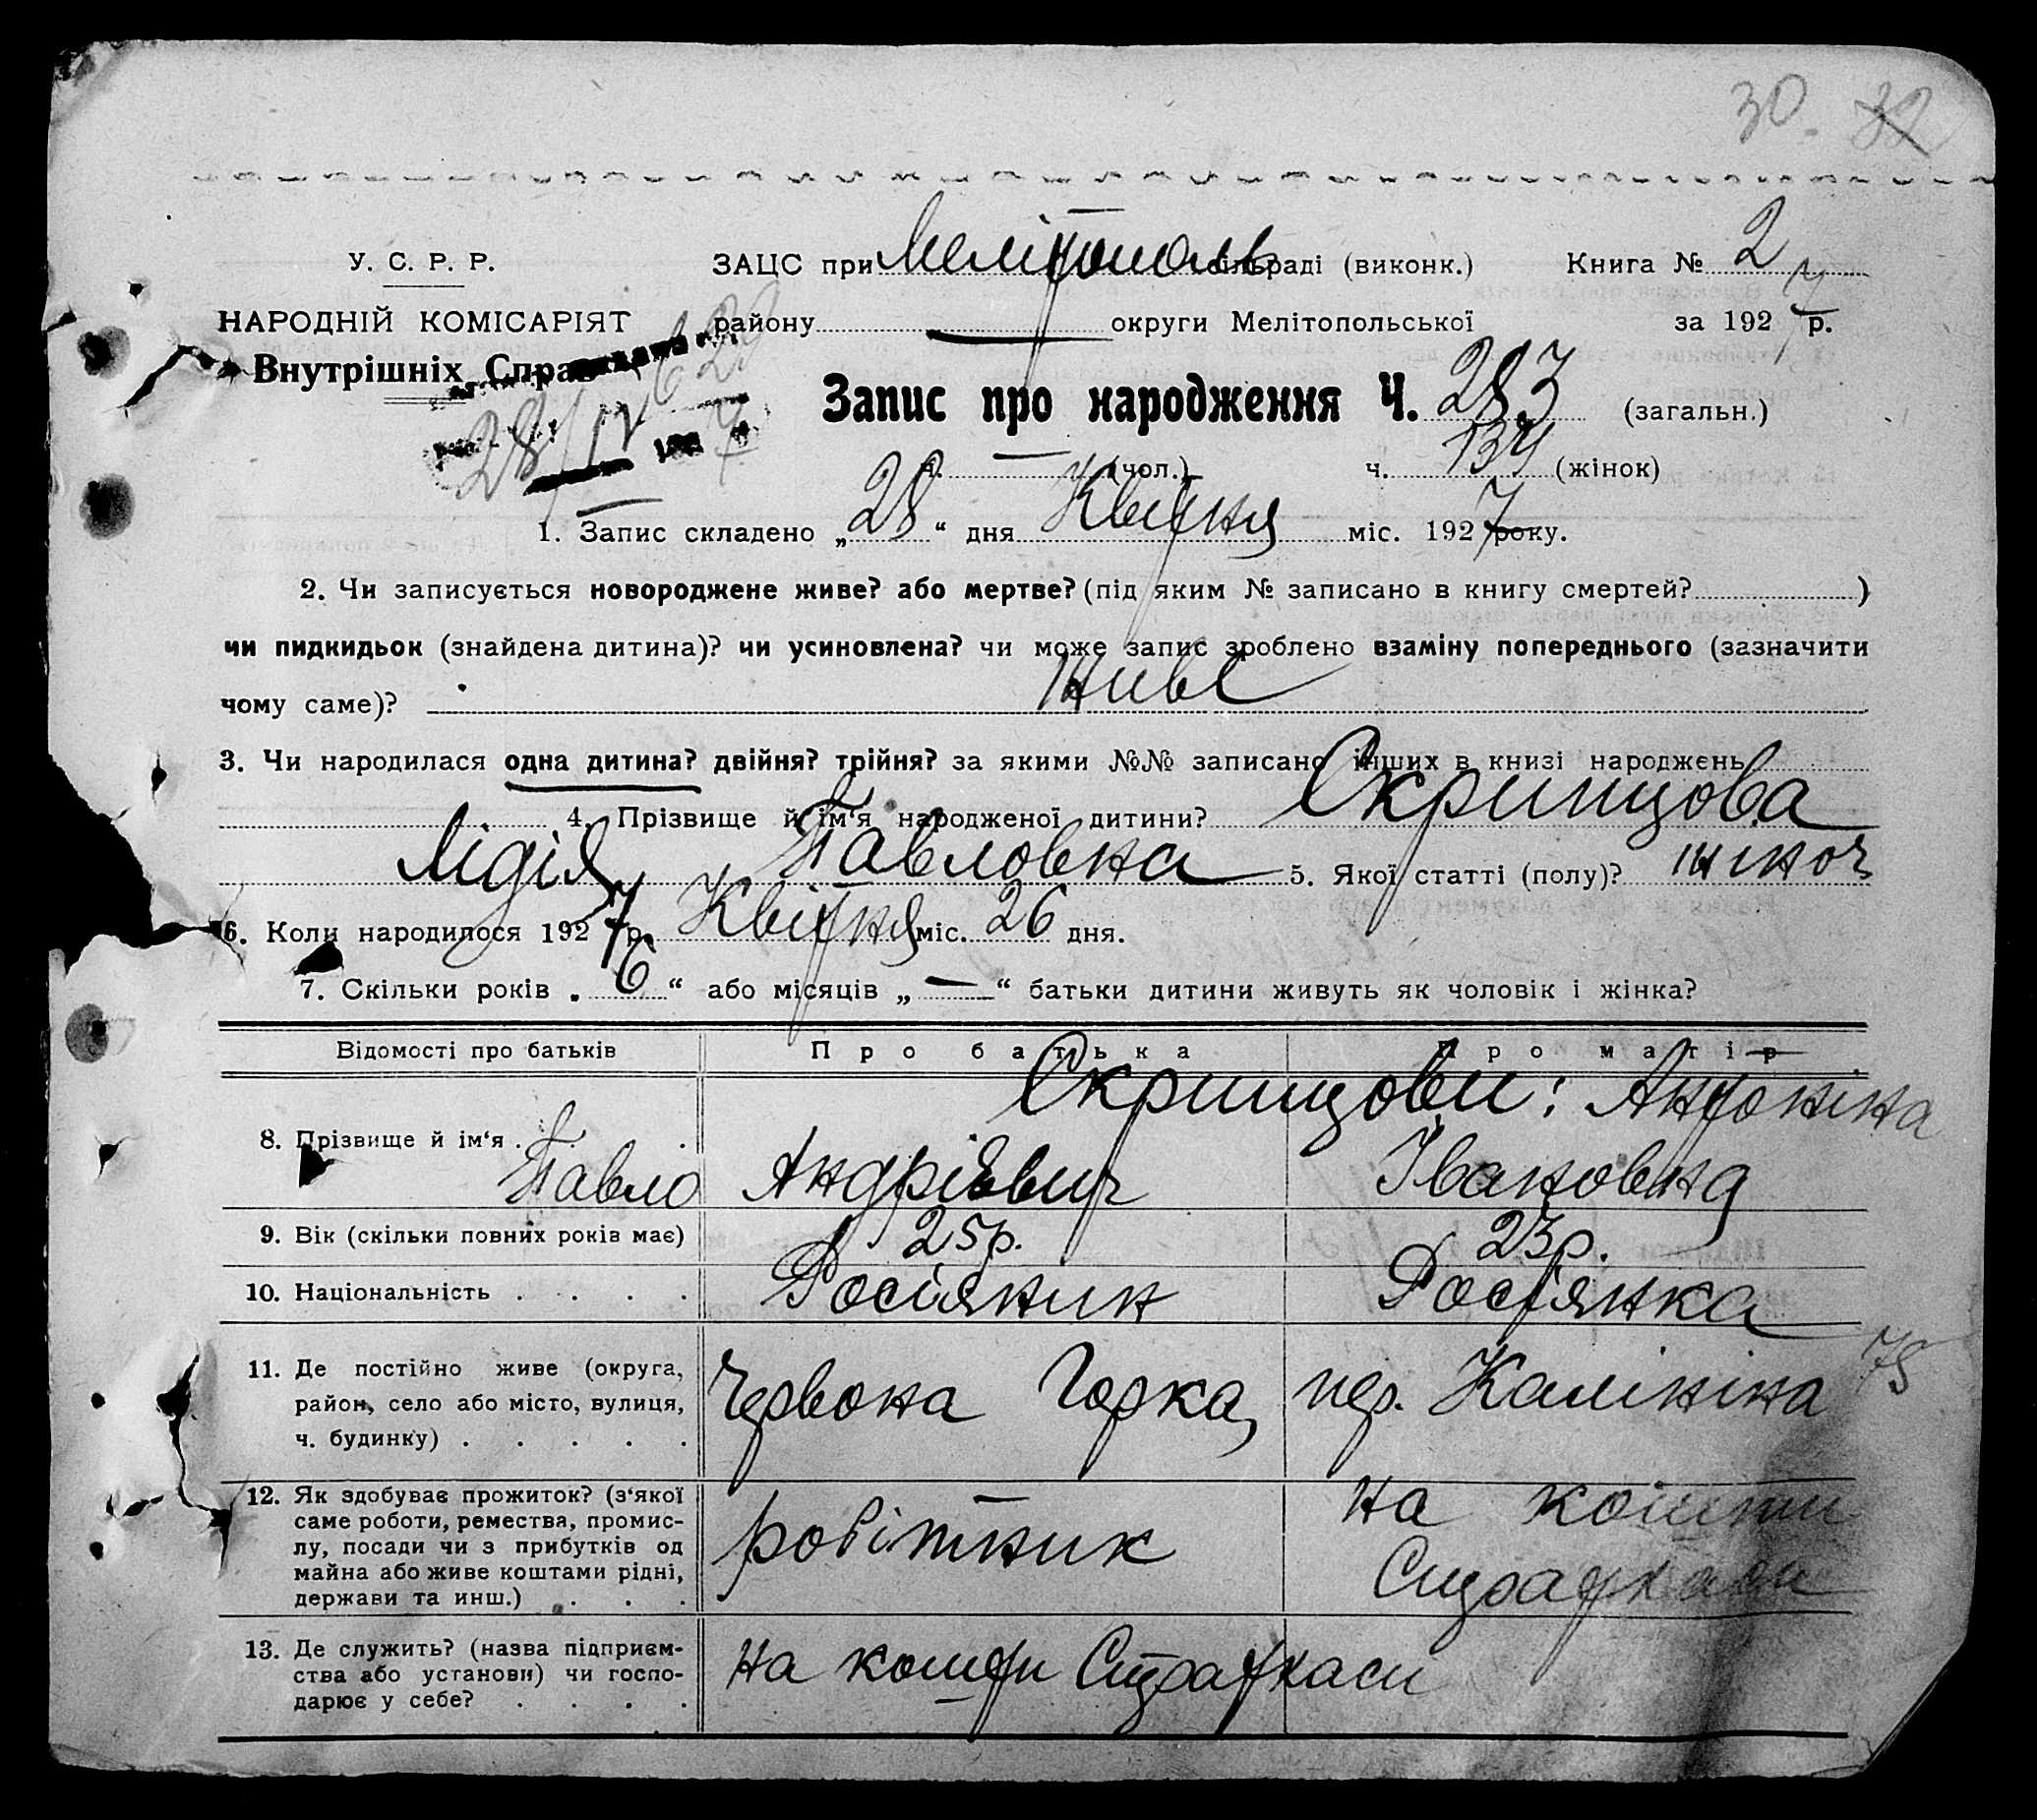 30. 32
У. С. Р. Р.
НАРОДНІЙ КОМІСАРІЯТ
Внутрішніх Справ
629
28/IV 7
ЗАЦС при Мелітополь сільраді (виконк.) Книга № 2
району — округи Мелітопольської за 1927 р.
Запис про народження Ч. 283 (загальн.)
ч. — (чол.) ч. 134 (жінок)
1. Запис складено „28“ дня Квітня міс. 1927 року.
2. Чи записується новороджене живе? або мертве? (під яким № записано в книгу смертей? )
чи пидкидьок (знайдена дитина)? чи усиновлена? чи може запис зроблено взаміну попереднього (зазначити
чому саме)? Живе
3. Чи народилася одна дитина? двійня? трійня? за якими №№ записано інших в книзі народжень
4. Прізвище й ім‘я народженої дитини? Скрипцова
Лідія Павловна 5. Якої статті (полу)? жіноч
6. Коли народилося 1927 р. Квітня міс. 26 дня.
7. Скільки років „6“ або місяців „—“ батьки дитини живуть як чоловік і жінка?
Відомості про батьків Про батька Про матір
Скрипцови: Антоніна
8. Прізвище й ім‘я . . . Павло Андрієвич Івановна
9. Вік (скільки повних років має) 25р. 23р.
10. Національність . . . . Росіяник Росіянка
11. Де постійно живе (округа,
район, село або місто, вулиця,
ч. будинку) . . . . . Червона Горка, пер. Калініна 75
12. Як здобуває прожиток? (з‘якої
саме роботи, ремества, промис-
лу, посади чи з прибутків од
майна або живе коштами рідні,
держави та инш.) . . . робітник на кошти
Страхкаси
13. Де служить? (назва підприєм-
ства або установи) чи госпо-
дарює у себе? . . . . на кошти Страхкаси